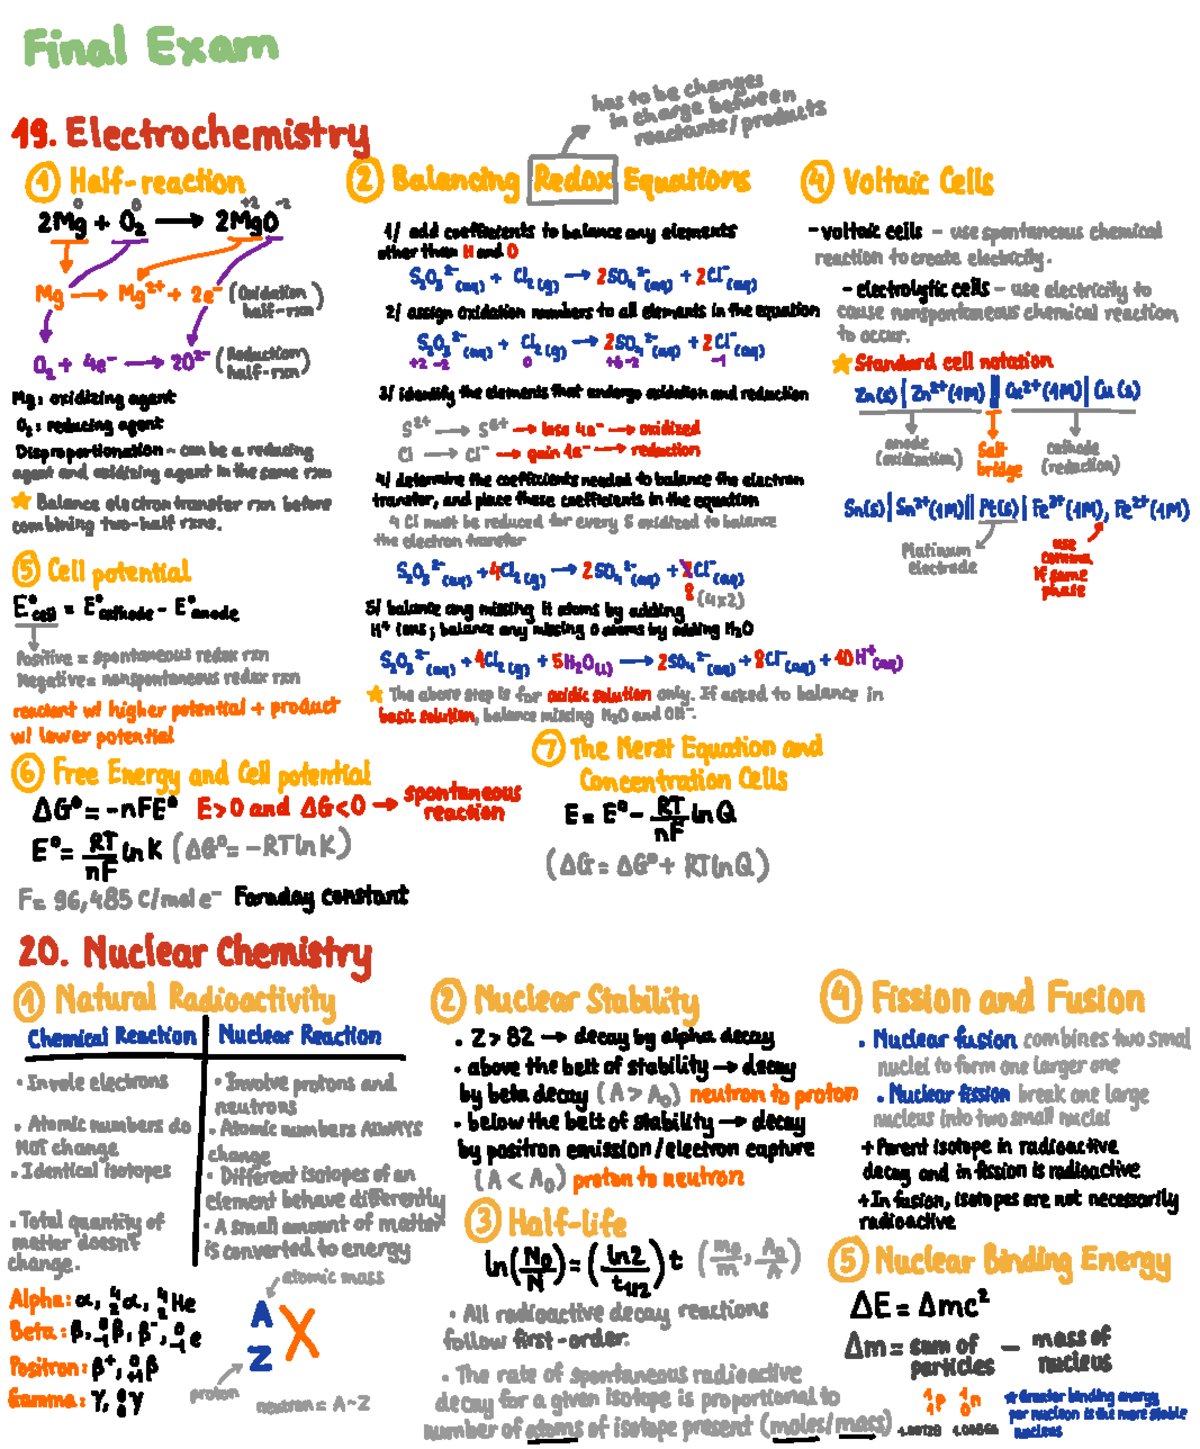 Final Exam
19. Electrochemistry
has to be changes
in charge between
reactants/products
① Half-reaction
0 0 +2 -2
2Mg + O₂ → 2MgO
Mg → Mg²⁺ + 2e⁻ (Oxidation
half-rxn)
O₂ + 4e⁻ → 2O²⁻ (Reduction
half-rxn)
Mg: oxidizing agent
O₂: reducing agent
Disproportionation - can be a reducing
agent and oxidizing agent in the same rxn
★ Balance electron transfer rxn before
combining two-half rxns.
② Balancing Redox Equations
1/ add coefficients to balance any elements
other than H and O
S₂O₃²⁻(aq) + Cl₂(g) → 2SO₄²⁻(aq) + 2Cl⁻(aq)
2/ assign oxidation numbers to all elements in the equation
S₂O₃²⁻(aq) + Cl₂(g) → 2SO₄²⁻(aq) + 2Cl⁻(aq)
+2 -2 0 +6 -2 -1
3/ identify the elements that undergo oxidation and reduction
S²⁺ → S⁶⁺ → lose 4e⁻ → oxidized
Cl → Cl⁻ → gain 1e⁻ → reduction
4/ determine the coefficients needed to balance the electron
transfer, and place these coefficients in the equation
4 Cl must be reduced for every S oxidized to balance
the electron transfer
S₂O₃²⁻(aq) + 4Cl₂(g) → 2SO₄²⁻(aq) + 2Cl⁻(aq)
8 (4x2)
5/ balance any missing H atoms by adding
H⁺ ions; balance any missing O atoms by adding H₂O
S₂O₃²⁻(aq) + 4Cl₂(g) + 5H₂O(l) → 2SO₄²⁻(aq) + 8Cl⁻(aq) + 10H⁺(aq)
★ The above step is for acidic solution only. If asked to balance in
basic solution, balance missing H₂O and OH⁻.
④ Voltaic Cells
- voltaic cells - use spontaneous chemical
reaction to create electricity.
- electrolytic cells - use electricity to
cause nonspontaneous chemical reaction
to occur.
★ Standard cell notation
Zn(s) | Zn²⁺(1M) || Cu²⁺(1M) | Cu(s)
anode
(oxidization)
Salt
bridge
cathode
(reduction)
Sn(s) | Sn²⁺(1M) || Pt(s) | Fe³⁺(1M), Fe²⁺(1M)
Platinum
electrode
use
comma
if same
phase
⑤ Cell potential
E°cell = E°cathode - E°anode
Positive = spontaneous redox rxn
Negative = nonspontaneous redox rxn
reactant w/ higher potential + product
w/ lower potential
⑥ Free Energy and Cell potential
ΔG° = -nFE° E>0 and ΔG<0 → spontaneous
reaction
E° = RT/nF ln K (ΔG° = -RT ln K)
F = 96,485 C/mol e⁻ Faraday constant
⑦ The Nerst Equation and
Concentration Cells
E = E° - RT/nF ln Q
(ΔG = ΔG° + RT ln Q)
20. Nuclear Chemistry
① Natural Radioactivity
Chemical Reaction | Nuclear Reaction
• Invole electrons
• Atomic numbers do
NOT change
• Identical isotopes
• Total quantity of
matter doesn't
change.
• Involve protons and
neutrons
• Atomic numbers ALWAYS
change
• Different isotopes of an
element behave differently
• A small amount of matter
is converted to energy
Alpha: α, ⁴₂α, ⁴₂He
Beta: β, ⁰₋₁β, β⁻, ⁰₋₁e
Positron: β⁺, ⁰₊₁β
Gamma: γ, ⁰₀γ
atomic mass
A
Z X
proton
neutron = A - Z
② Nuclear Stability
• Z > 82 → decay by alpha decay
• above the belt of stability → decay
by beta decay (A > A₀) neutron to proton
• below the belt of stability → decay
by positron emission/electron capture
(A < A₀) proton to neutron
③ Half-life
ln(N₀/N) = (ln2/t₁/₂) t (m₀/m, A₀/A)
• All radioactive decay reactions
follow first-order.
• The rate of spontaneous radioactive
decay for a given isotope is proportional to
number of atoms of isotope present (moles/mass)
④ Fission and Fusion
• Nuclear fusion combines two smal
nuclei to form one larger one
• Nuclear fission break one large
nucleus into two small nuclei
+ Parent isotope in radioactive
decay and in fission is radioactive
+ In fusion, isotopes are not necessarily
radioactive
⑤ Nuclear Binding Energy
ΔE = Δmc²
Δm = sum of particles - mass of nucleus
¹₁p ¹₀n
1.00728 1.00866
★ Greater binding energy
per nucleon is the more stable
nucleus